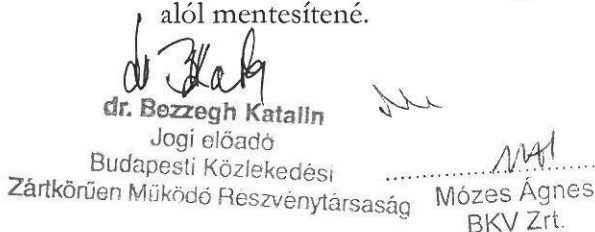 alól mentesítené.
dr. Bezzegh Katalin
Jogi előadó
Budapesti Közlekedési
Zártkörűen Működő Részvénytársaság
Mózes Ágnes
BKV Zrt.